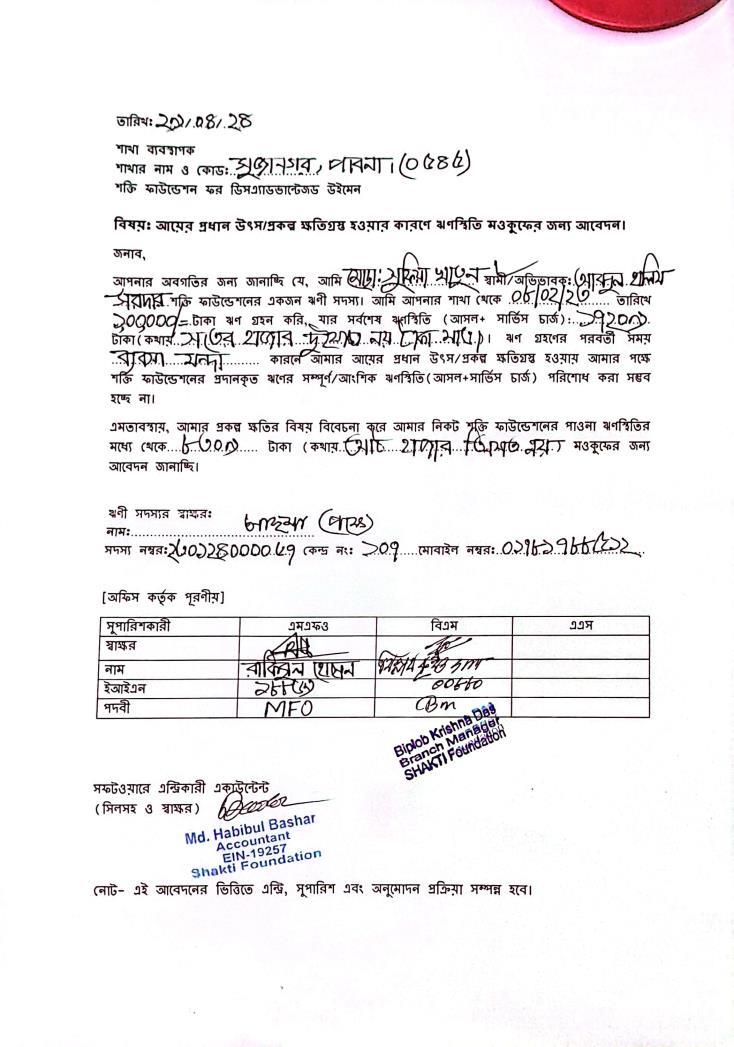 তারিখঃ ২৯/০৪/২৪
শাখা ব্যবস্থাপক
শাখার নাম ও কোডঃ সুজানগর, পাবনা। (০৫৪৫)
শক্তি ফাউন্ডেশন ফর ডিসএ্যাডভান্টেজড উইমেন
বিষয়ঃ আয়ের প্রধান উৎস/প্রকল্প ক্ষতিগ্রস্থ হওয়ার কারণে ঋণস্থিতি মওকুফের জন্য আবেদন।
জনাব,
আপনার অবগতির জন্য জানাচ্ছি যে, আমি মোছাঃ সুফিয়া খাতুন স্বামী/অভিভাবকঃ আব্দুল হালিম
সরদার শক্তি ফাউন্ডেশনের একজন ঋণী সদস্য। আমি আপনার শাখা থেকে তারিখে
১০০০০০/= টাকা ঋণ গ্রহন করি, যার সর্বশেষ ঋণস্থিতি (আসল+ সার্ভিস চার্জ): ১৭২০৯
টাকা (কথায় সতের হাজার দুইশত নয় টাকা মাত্র)। ঋণ গ্রহণের পরবর্তী সময়
ব্যবসা মন্দা কারনে আমার আয়ের প্রধান উৎস/প্রকল্প ক্ষতিগ্রস্থ হওয়ায় আমার পক্ষে
শক্তি ফাউন্ডেশনের প্রদানকৃত ঋণের সম্পূর্ণ/আংশিক ঋণস্থিতি(আসল+সার্ভিস চার্জ) পরিশোধ করা সম্ভব
হচ্ছে না।
এমতাবস্থায়, আমার প্রকল্প ক্ষতির বিষয় বিবেচনা করে আমার নিকট শক্তি ফাউন্ডেশনের পাওনা ঋণস্থিতির
মধ্যে থেকে ৮৩০৯ টাকা (কথায় আট হাজার তিনশত নয়) মওকুফের জন্য
আবেদন জানাচ্ছি।
ঋণী সদস্যর স্বাক্ষরঃ
নামঃ
সদস্য নম্বরঃ কেন্দ্র নং: ১০৭ মোবাইল নম্বরঃ
[অফিস কর্তৃক পূরণীয়]
সুপারিশকারী এমএফও বিএম এএস
স্বাক্ষর
নাম রাকিবুল হোসেন
ইআইএন
পদবী MFO BM
Biplob Krishna Das
Branch Manager
SHAKTI Foundation
সফটওয়ারে এন্ট্রিকারী একাউন্টেন্ট
(সিলসহ ও স্বাক্ষর)
Md. Habibul Bashar
Accountant
EIN-19257
Shakti Foundation
নোট- এই আবেদনের ভিত্তিতে এন্ট্রি, সুপারিশ এবং অনুমোদন প্রক্রিয়া সম্পন্ন হবে।